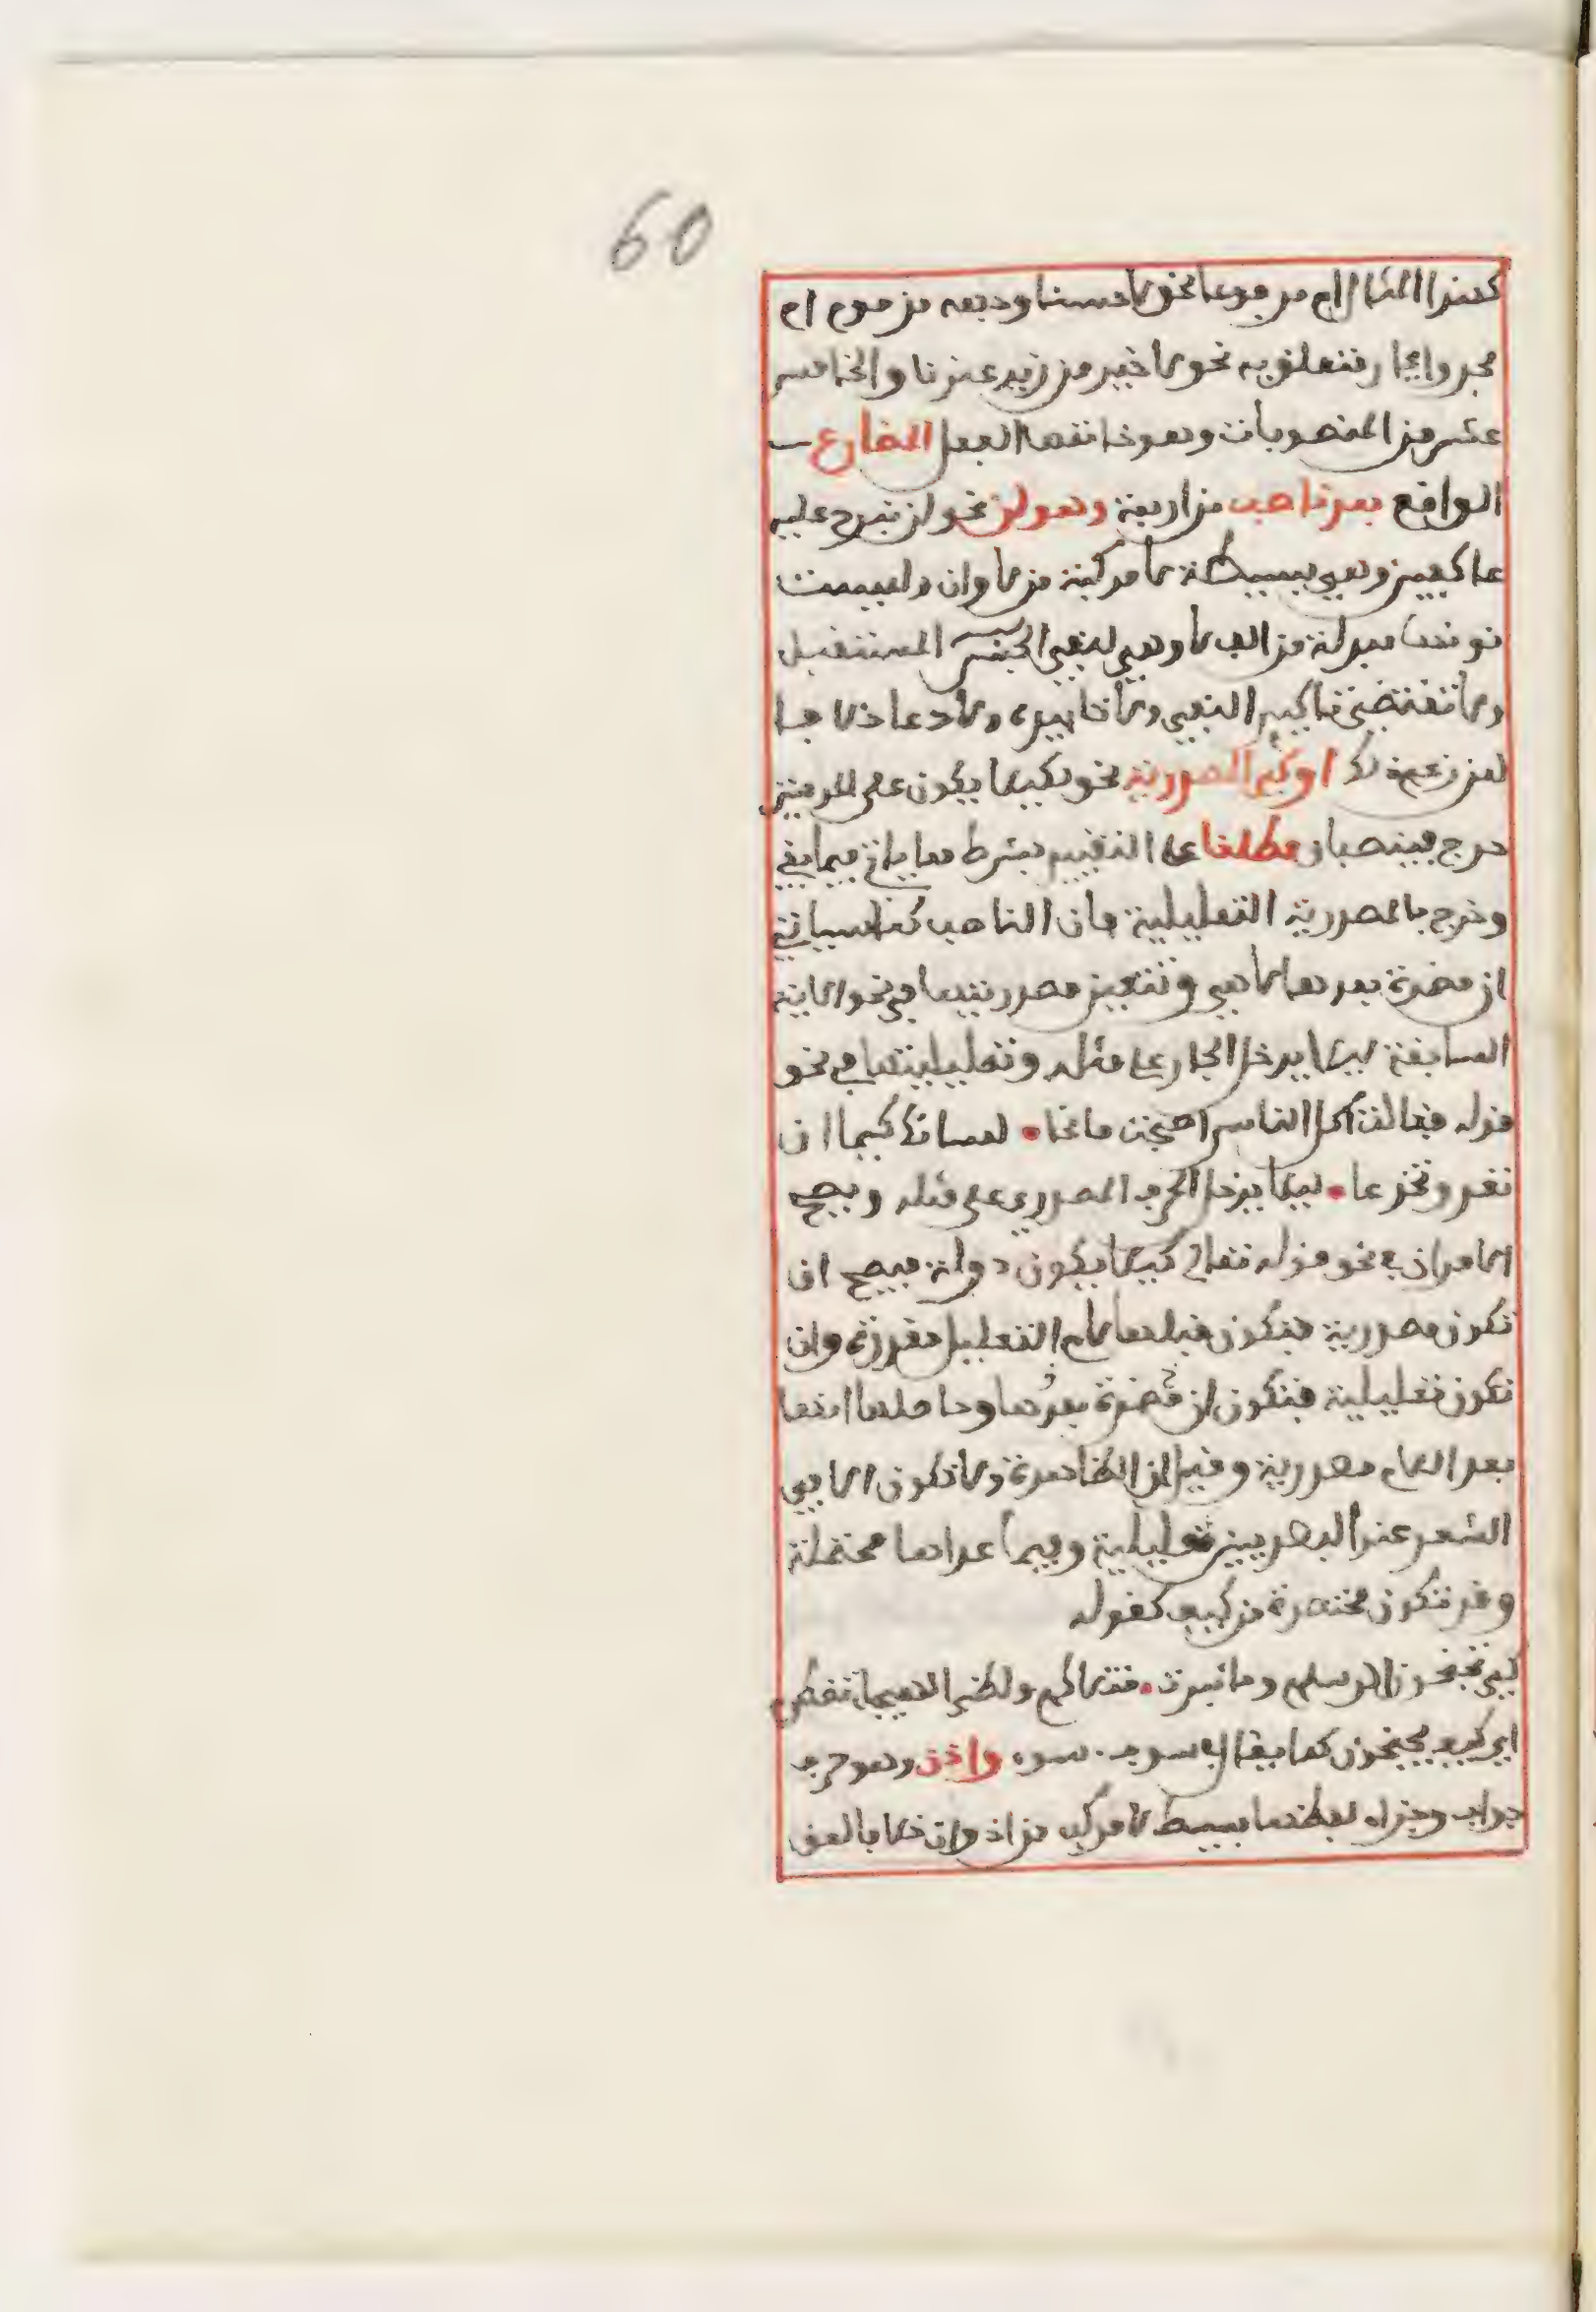 60
كهذا المثال ام مرفوعا نحو لا حسنا وجهه مذموم ام
مجروا بجار متعلق به نحو لا خير من زيد عندنا والخامس
عشر من المنصوبات وهو خاتمها الفعل المضارع
الواقع بعد ناصب من اربعة وهو لن نحو لن نبرح عليه
عاكفين وهي بسيطة لا مركبة من لا وان وليست
نونها مبدلة من الف لا وهي لنفي الجنس المستقبل
ولا تقتضي تاكيد النفي ولا تابيده ولا دعا خلافا
لمن زعم ذلك اوكي المصدرية نحو لكيلا يكون على المومنين
حرج فينصبان مطلقا على التقييد بشرط مما ياتي فيما بقي
وخرج بالمصدرية التعليلية فان الناصب كما سياتي
ان مضمرة بعدها لا هي وتتعين مصدريتها في نحو الاية
السابقة ليلا يدخل الجار على مثله وتعليليتها في نحو
قوله فقالت اكل الناس اصبحت مانحا • لسانك كيما ان
تغر وتخدعا • ليلا يدخل الحرف المصدري على مثله ويصح
الامران في نحو قوله تعالى كيلا يكون دولة فيصح ان
تكون مصدرية فتكون قبلها لام التعليل مقدرة وان
تكون تعليلية فتكون ان مضمرة بعدها وحاصلها انها
بعد اللام مصدرية وقبل ان الظاهرة ولا تكون الا في
الشعر عند البصريين تعليلية وفيما عداها محتملة
وقد تكون مختصرة من كيف كقوله
كي تجنحون الى سلم وما ثيرت • قتلاكم ولظى الهيجا تضطرم
اي كيف تجنحون كما يقال في سوف سو، واذن وهو حرف
جواب وجزاء لفظها بسيط لا مركب من اذ وان خلافا لمن